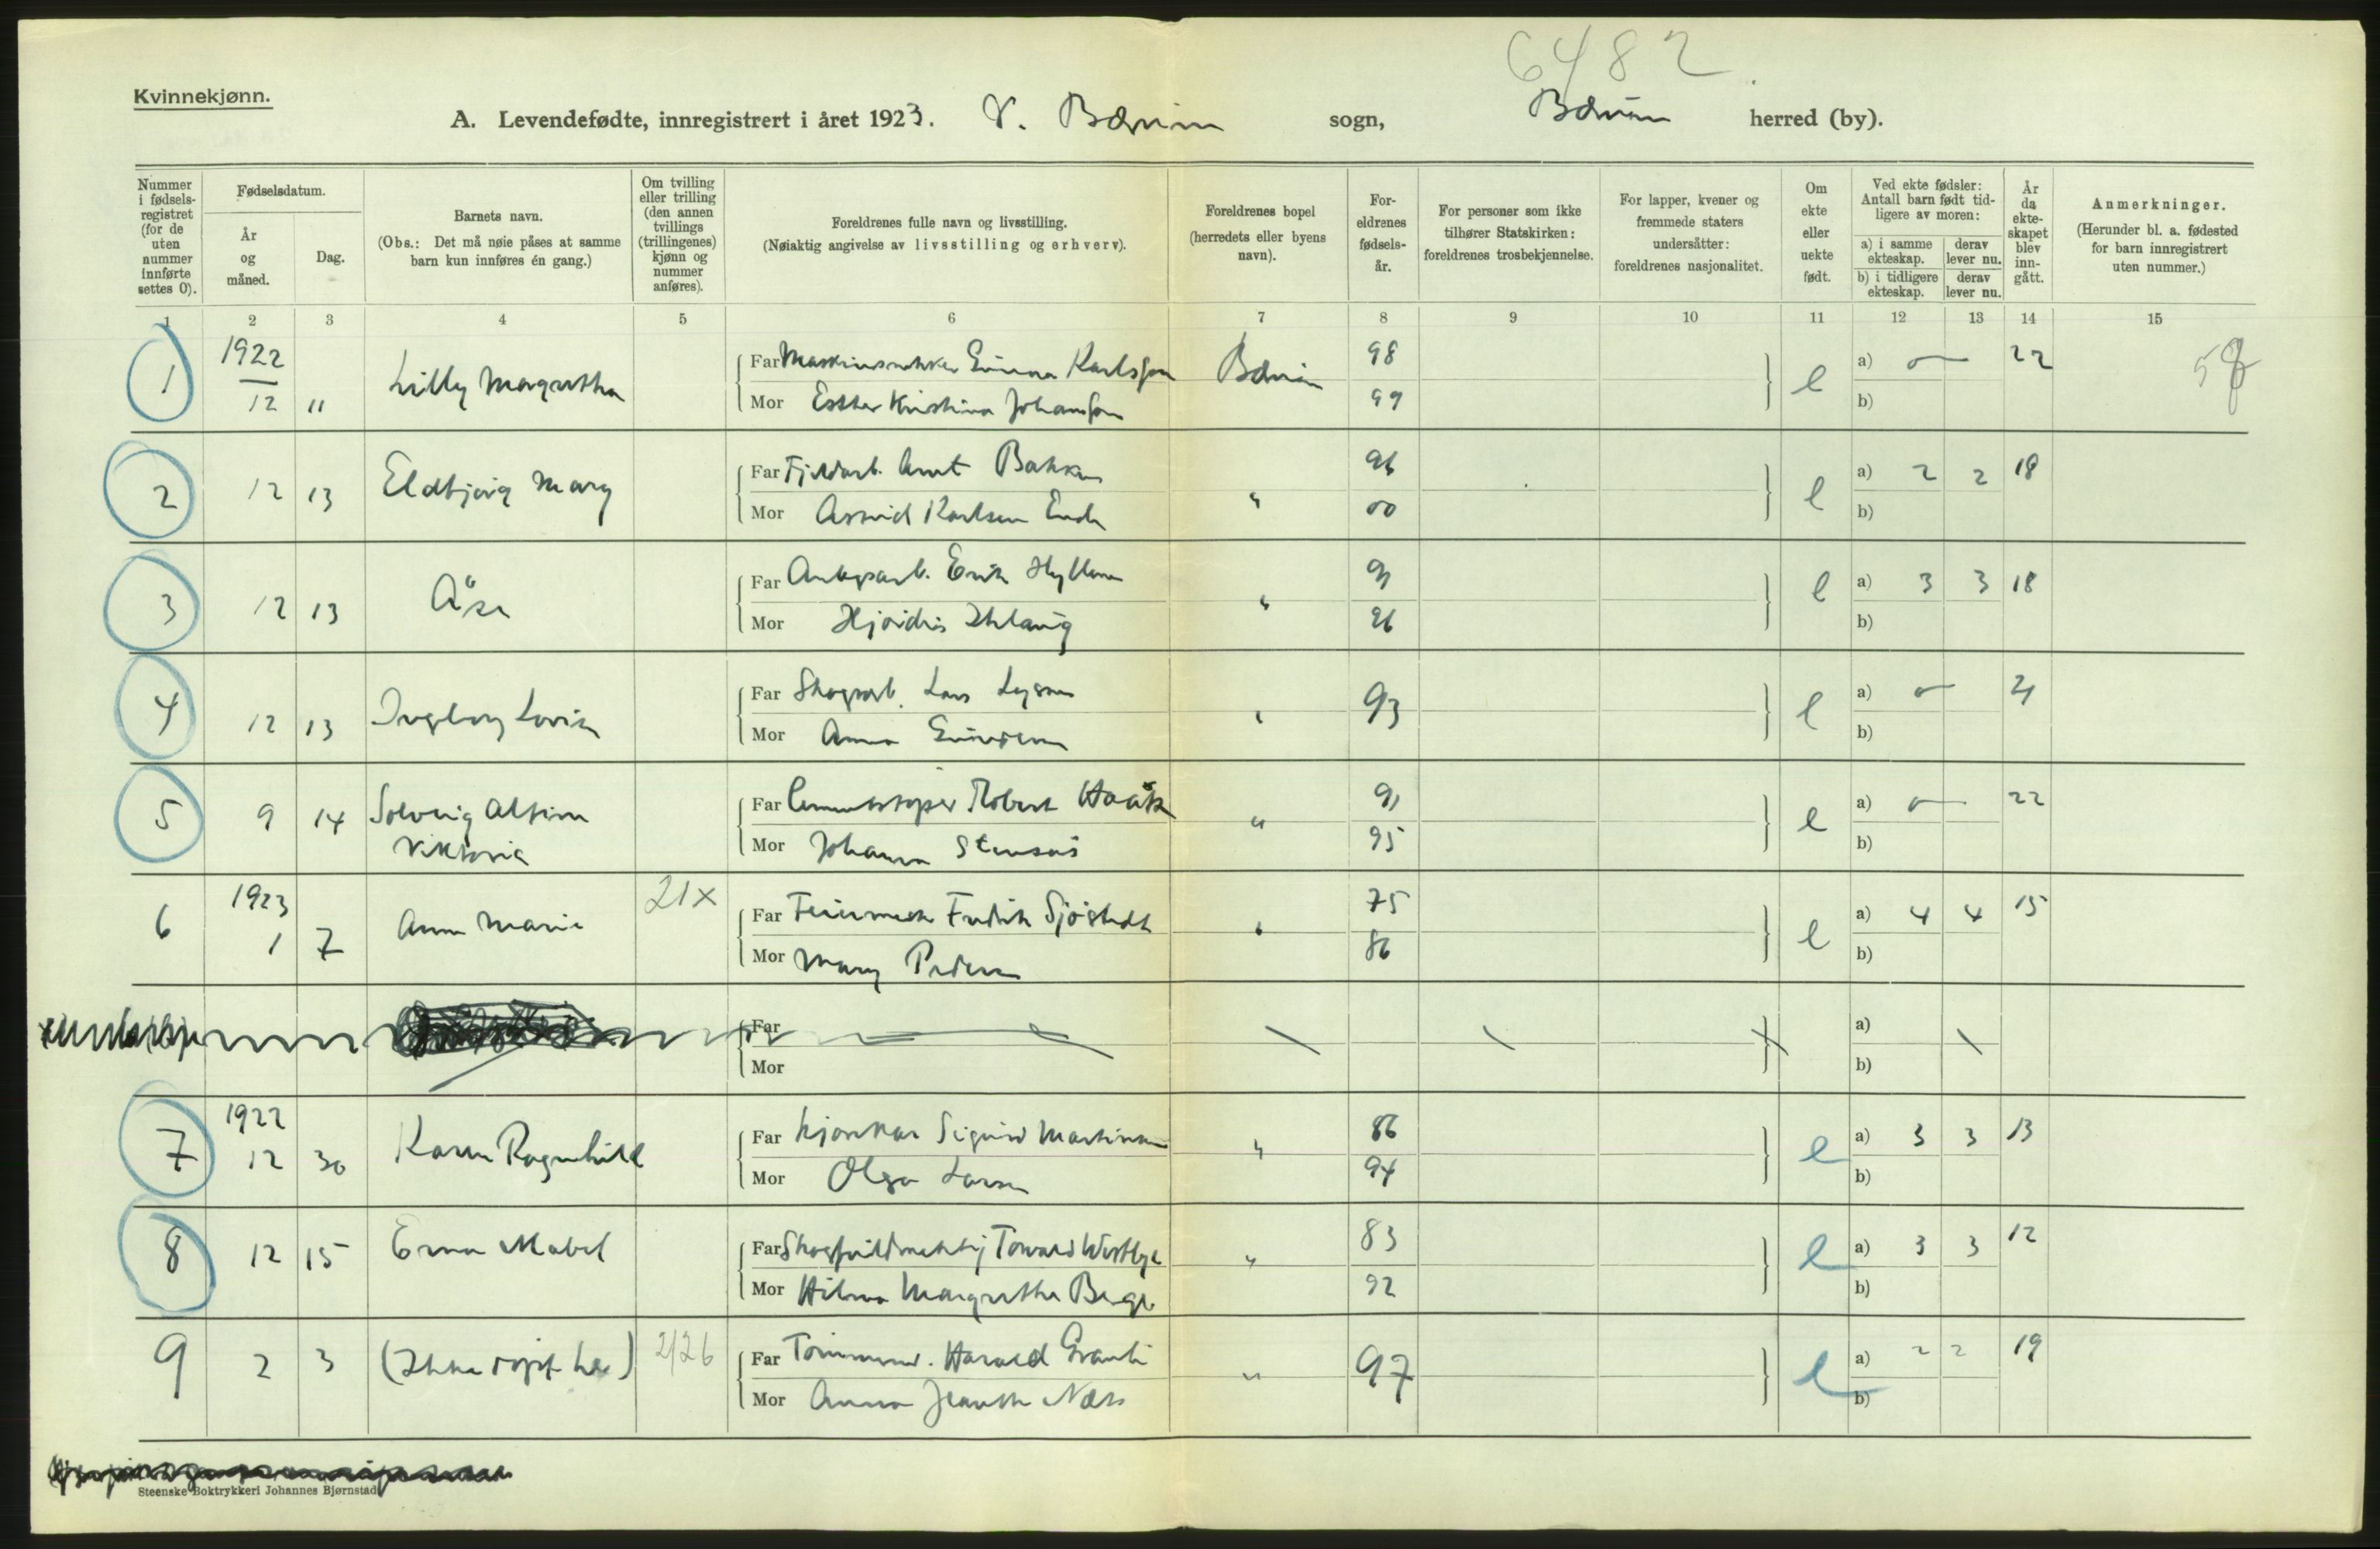 6482
Kvinnekjønn.
A. Levendefødte, innregistrert i året 1923. V. Bærum sogn, Bærum herred (by).
Nummer i fødselsregistret (for de uten nummer innførte settes 0).
Fødselsdatum.
År og måned.
Dag.
Barnets navn.
(Obs.: Det må nøie påses at samme barn kun innføres én gang.)
Om tvilling eller trilling (den annen tvillings (trillingenes) kjønn og nummer anføres).
Foreldrenes fulle navn og livsstilling.
(Nøiaktig angivelse av livsstilling og erhverv).
Foreldrenes bopel (herredets eller byens navn).
Foreldrenes fødselsår.
For personer som ikke tilhører Statskirken: foreldrenes trosbekjennelse.
For lapper, kvener og fremmede staters undersåtter: foreldrenes nasjonalitet.
Om ekte eller uekte født.
Ved ekte fødsler: Antall barn født tidligere av moren:
a) i samme ekteskap. derav lever nu.
b) i tidligere ekteskap. derav lever nu.
År da ekteskapet blev inngått.
Anmerkninger.
(Herunder bl. a. fødested for barn innregistrert uten nummer.)
1 2 3 4 5 6 7 8 9 10 11 12 13 14 15
1 1922 12 11 Lilly Margretha Far Einar Karlsson Bærum 98 e a) o 22
Mor Esther Kristina Johansson 99 b)
2 12 13 Eldbjørg Mary Far Fjeldarb. Arnt Bakken " 96 e a) 2 2 18
Mor Astrid Karlsen 00 b)
3 12 13 Åse Far Erik " 91 e a) 3 3 18
Mor Hjørdis 96 b)
4 12 13 Ingeborg Far Skogsarb. Lars " 93 e a) o 21
Mor Anna b)
5 9 14 Solveig Alfine Viktoria Far Robert " 91 e a) o 22
Mor Johanna Stensås 95 b)
6 1923 1 7 Anna Marie 21x Far Fredrik Sjöstedt " 75 e a) 4 4 15
Mor Mary Pedersen 86 b)
Far a)
Mor b)
7 1922 12 30 Karen Ragnhild Far Sigurd Martinsen " 86 e a) 3 3 13
Mor Olga Larsen 94 b)
8 12 15 Erna Mabel Far " 83 e a) 3 3 12
Mor Hilma Margretha Berge 92 b)
9 2 3 (Ikke ) 2/26 Far Harald " 97 e a) 2 2 19
Mor Anna Næss b)
Steenske Boktrykkeri Johannes Bjørnstad